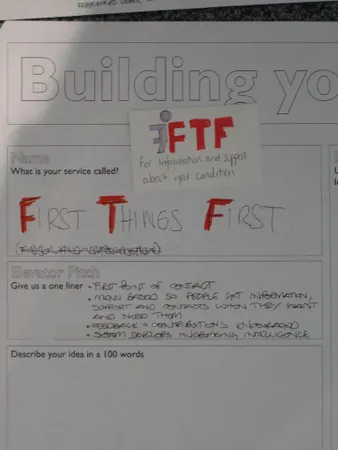 Building yo
iFTF
For Information and support
about your condition
Name
What is your service called?
FIRST THINGS FIRST
Elevator Pitch
Give us a one liner • FIRST POINT OF CONTACT
• BASED SO PEOPLE GET INFORMATION,
SUPPORT AND CONTACTS WHEN THEY WANT
AND NEED THEM
• FEEDBACK + CONTRIBUTIONS ENCOURAGED
• SYSTEM DEVELOPS INCREASING INTELLIGENCE
Describe your idea in a 100 words